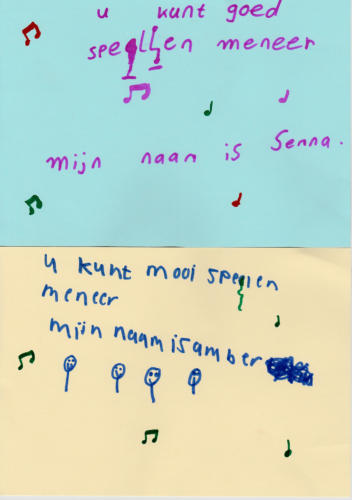 u kunt goed
spellen meneer
mijn naam is Senna.
u kunt mooi spellen
meneer
mijn naam is amber